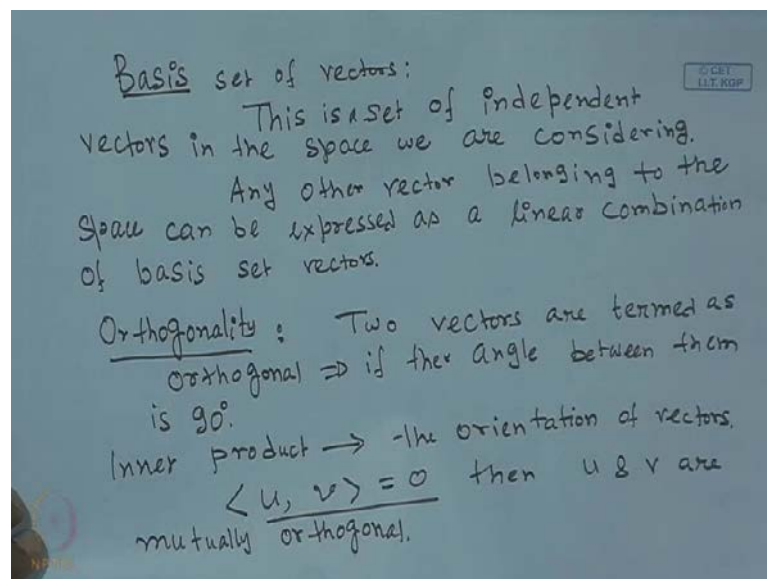 Basis set of vectors:
© CET
I.I.T. KGP
This is a set of independent
vectors in the space we are considering.
Any other vector belonging to the
space can be expressed as a linear combination
of basis set vectors.
Orthogonality : Two vectors are termed as
orthogonal ⇒ if ther angle between them
is 90°.
Inner product → the orientation of vectors.
<u, v> = 0 then u & v are
mutually orthogonal.